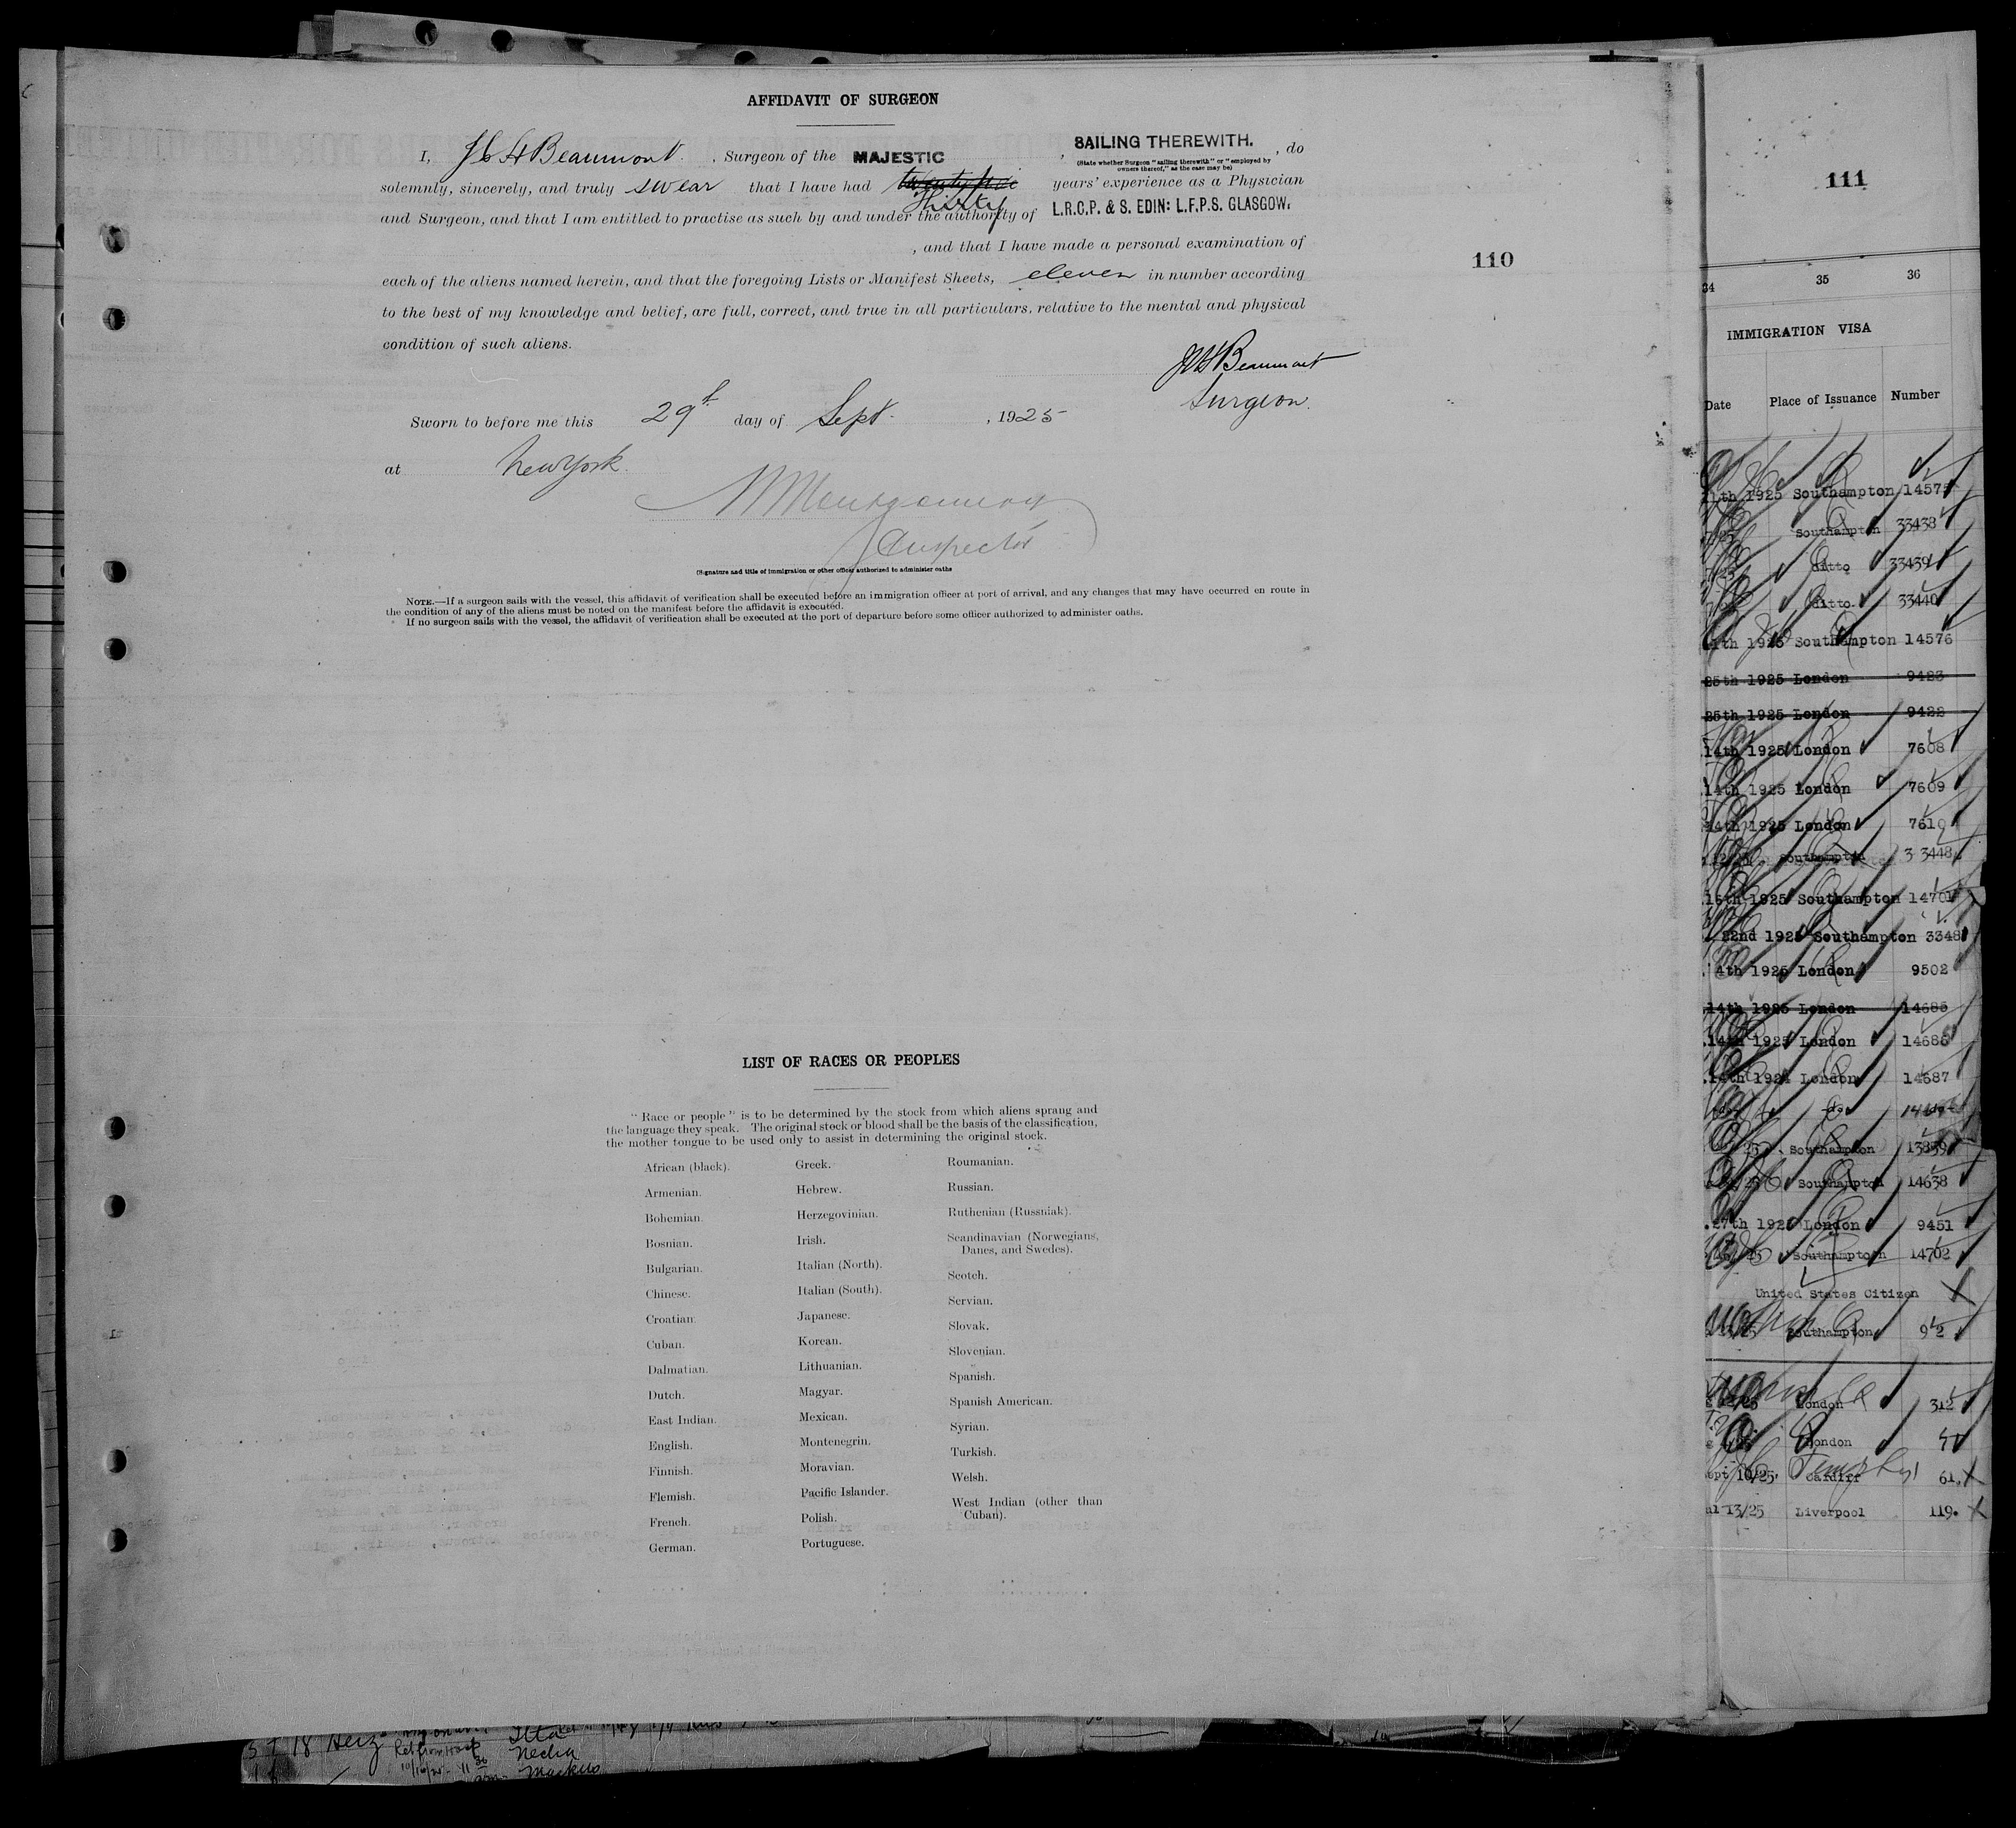 AFFIDAVIT OF SURGEON
I, J C H Beaumont. , Surgeon of the MAJESTIC , SAILING THEREWITH. , do
(State whether Surgeon "sailing therewith" or "employed by
owners thereof," as the case may be)
solemnly, sincerely, and truly swear that I have had twenty five years' experience as a Physician
Thirty
and Surgeon, and that I am entitled to practise as such by and under the authority of L.R.C.P. & S. EDIN: L.F.P.S. GLASGOW.
, and that I have made a personal examination of
each of the aliens named herein, and that the foregoing Lists or Manifest Sheets, eleven in number according
to the best of my knowledge and belief, are full, correct, and true in all particulars, relative to the mental and physical
condition of such aliens.
JCH Beaumont
Surgeon.
Sworn to before me this 29th day of Sept. , 1925
at New York.
Montgomery
Inspector
(Signature and title of immigration or other officer authorized to administer oaths
NOTE.—If a surgeon sails with the vessel, this affidavit of verification shall be executed before an immigration officer at port of arrival, and any changes that may have occurred en route in
the condition of any of the aliens must be noted on the manifest before the affidavit is executed.
If no surgeon sails with the vessel, the affidavit of verification shall be executed at the port of departure before some officer authorized to administer oaths.
110
LIST OF RACES OR PEOPLES
" Race or people " is to be determined by the stock from which aliens sprang and
the language they speak. The original stock or blood shall be the basis of the classification,
the mother tongue to be used only to assist in determining the original stock.
African (black).
Armenian.
Bohemian.
Bosnian.
Bulgarian.
Chinese.
Croatian.
Cuban.
Dalmatian.
Dutch.
East Indian.
English.
Finnish.
Flemish.
French.
German.
Greek.
Hebrew.
Herzegovinian.
Irish.
Italian (North).
Italian (South).
Japanese.
Korean.
Lithuanian.
Magyar.
Mexican.
Montenegrin.
Moravian.
Pacific Islander.
Polish.
Portuguese.
Roumanian.
Russian.
Ruthenian (Russniak).
Scandinavian (Norwegians,
Danes, and Swedes).
Scotch.
Servian.
Slovak.
Slovenian.
Spanish.
Spanish American.
Syrian.
Turkish.
Welsh.
West Indian (other than
Cuban).
111
34 35 36
IMMIGRATION VISA
Date Place of Issuance Number
11th 1925 Southampton 14575
Southampton 33438
ditto 33439
ditto 33440
11th 1925 Southampton 14576
25th 1925 London 9423
25th 1925 London 9422
14th 1925 London 7608
14th 1925 London 7609
14th 1925 London 7610
Southampton 33448
16th 1925 Southampton 14701
22nd 1925 Southampton 3348
4th 1925 London 9502
14th 1925 London 14685
14th 1925 London 14686
14th 1925 London 14687
do
Southampton 13839
Southampton 14638
27th 1925 London 9451
Southampton 14702
United States Citizen
Southampton
London 312
London
Sept 10/25 Cardiff 61.
13/25 Liverpool 119.
18 Herz
Necha
Markus